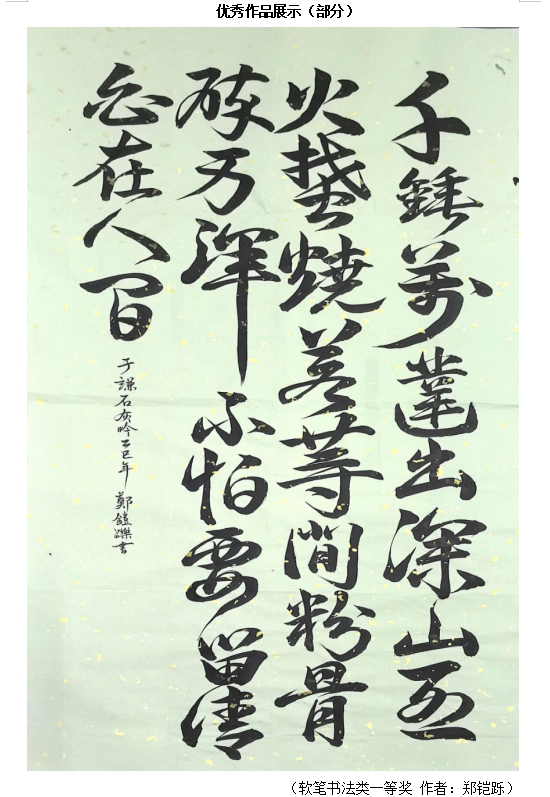 优秀作品展示（部分）
千錘萬鑿出深山烈
火焚燒若等閒粉骨
碎身渾不怕要留清
白在人間
于謙石灰吟乙巳年 鄭鎧躒書
（软笔书法类一等奖 作者：郑铠跞）